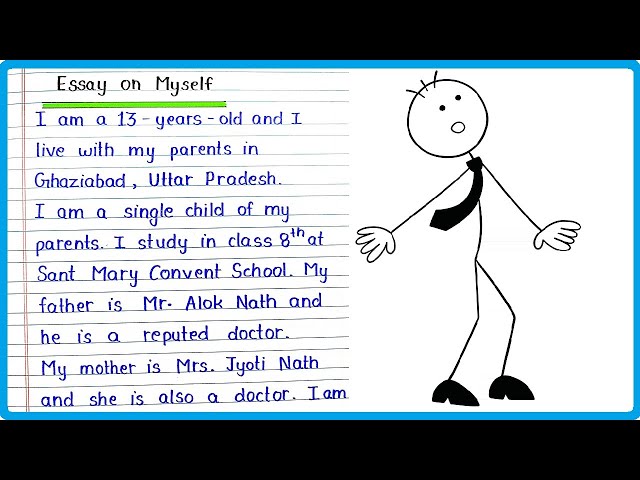 Essay on Myself
I am a 13-years-old and I
live with my parents in
Ghaziabad, Uttar Pradesh.
I am a single child of my
parents. I study in class 8th at
Sant Mary Convent School. My
father is Mr. Alok Nath and
he is a reputed doctor.
My mother is Mrs. Jyoti Nath
and she is also a doctor. I am